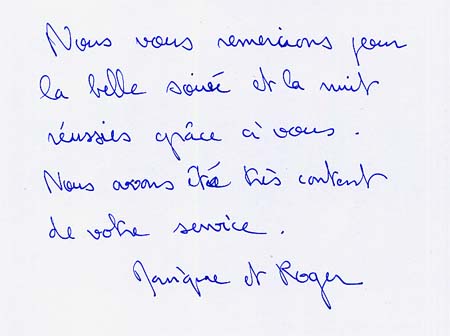 Nous vous remercions pour
la belle soirée et la nuit
réussies grâce à vous.
Nous avons été très content
de votre service.
Monique et Roger